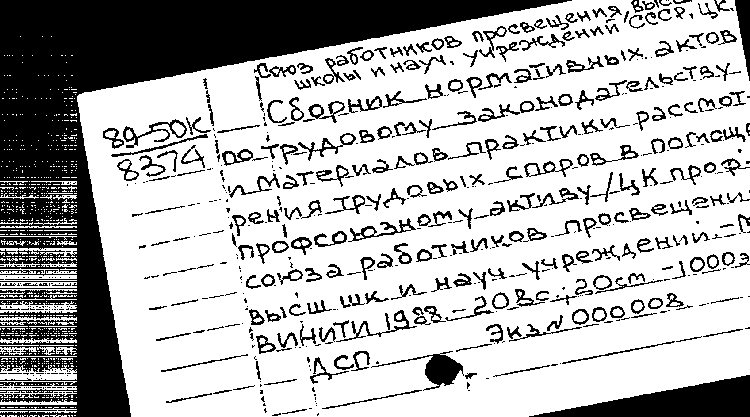 Союз работников просвещения, высш.
школы и науч. учреждений СССР, ЦК.
89-50К
8374
Сборник нормативных актов
по трудовому законодательству
и материалов практики рассмот-
рения трудовых споров в помощь
профсоюзному активу / ЦК проф-
союза работников просвещени
высш шк и науч учреждений. - М
ВИНИТИ, 1988. - 208с.; 20см - 1000э
ДСП. Экз N 000008